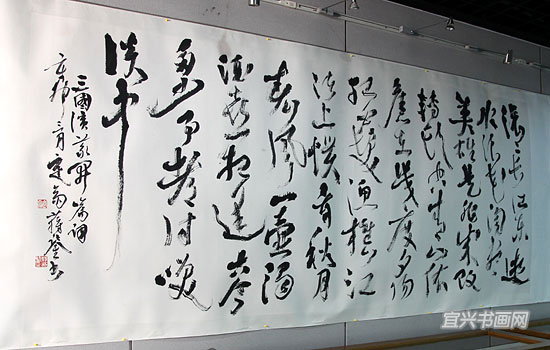 滚滚长江东逝
水浪花淘尽
英雄是非成败
转头空青山依
旧在几度夕阳
红白发渔樵江
渚上惯看秋月
春风一壶浊
酒喜相逢古
今多少事都付笑
谈中
三國演義開篇词
宜兴书画网